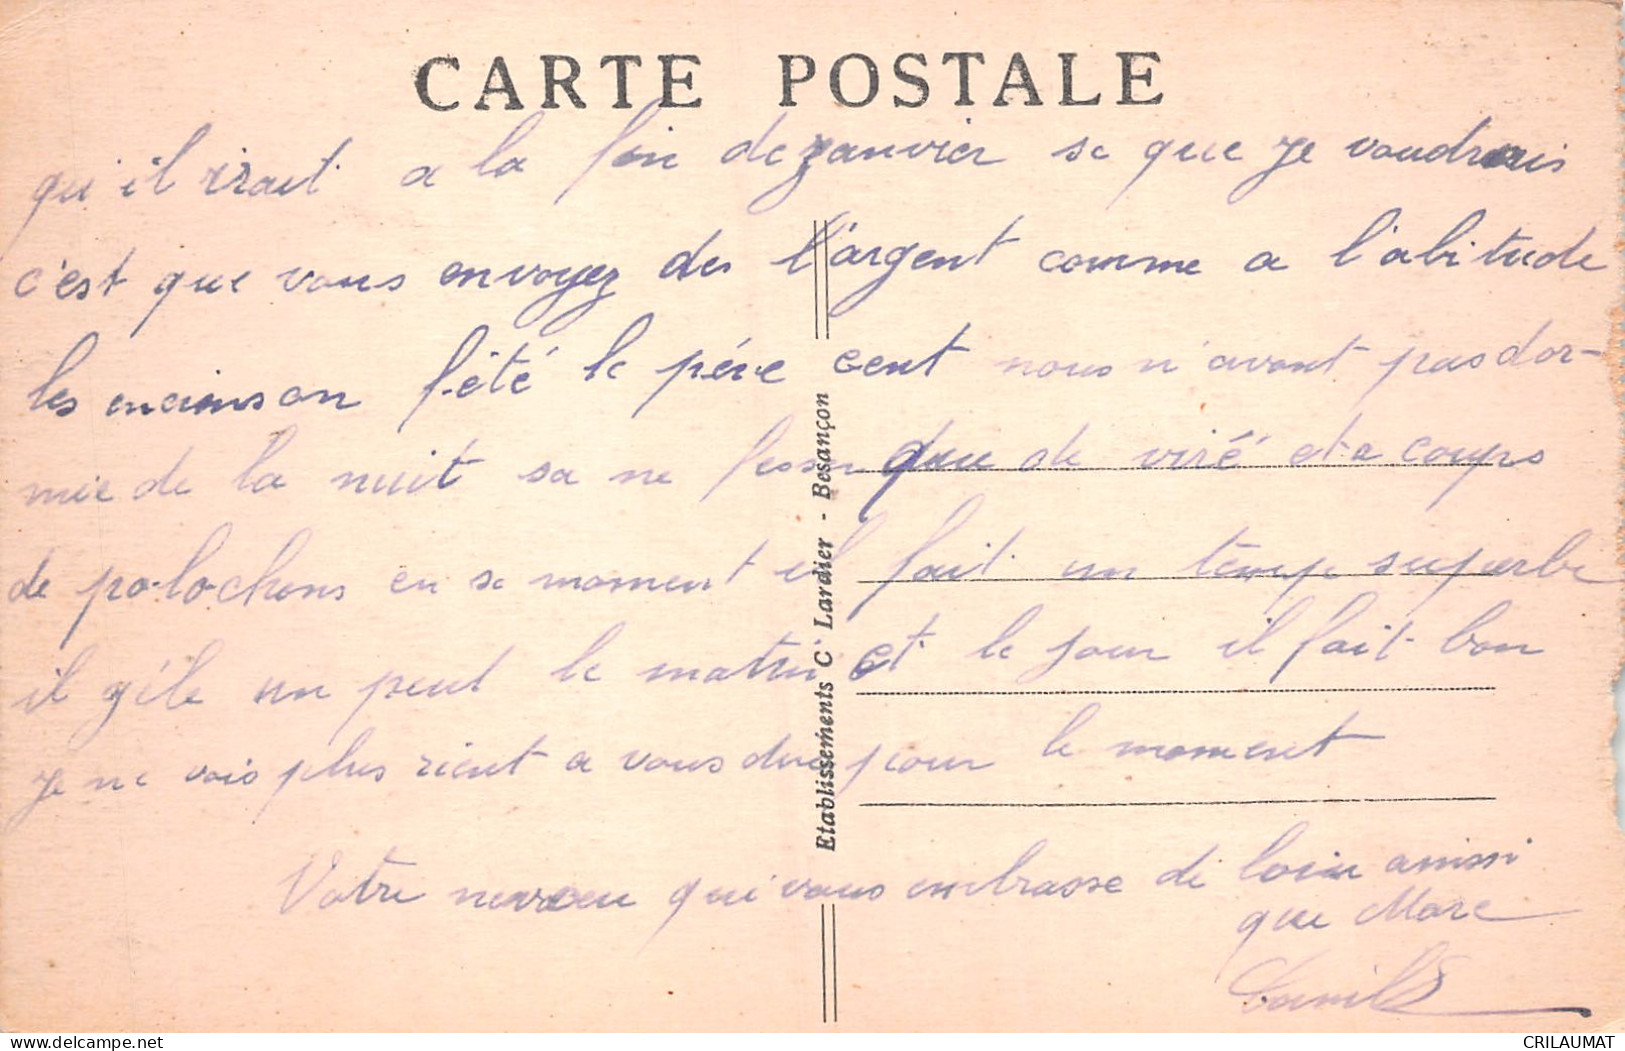 CARTE POSTALE
qu'il irait a la fin de janvier se que je voudrais
c'est que vous envoyez des l'argent comme a l'abitude
les on fété le père cent nous n'avont pas dor-
mie de la nuit sa ne que de viré et a coups
de polochons en se moment il fait un temp superbe
il géle un peut le matin et le jour il fait bon
je ne vois plus rient a vous dire pour le moment
Votre neveu qui vous embrasse de loin
que Marc
Etablissements C Lardier - Besançon
CRILAUMAT